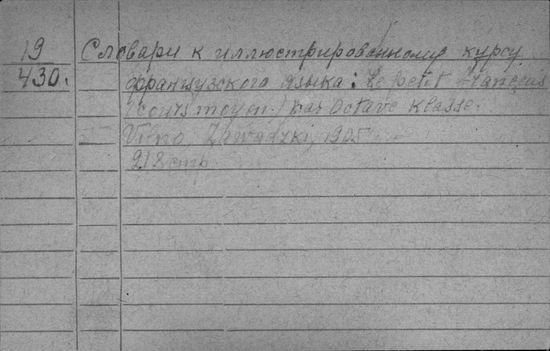 19
430.
Словари к иллюстрированному курсу
французского языка: Le petit français
(cours moyen.) par Octave Klasse.
Zawadzki, 1905
212 стр.